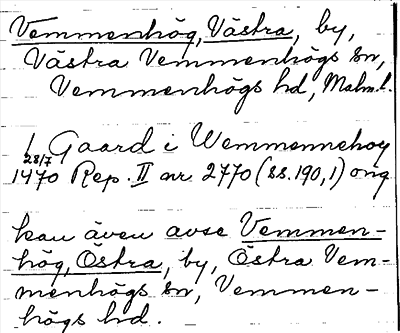 Vemmenhög, Västra, by,
Västra Vemmenhögs sn,
Vemmenhögs hd, Malm.l.
1 Gaard i Wemmennehoy
28/7
1470 Rep. II nr 2770 (ss. 190,1) orig
kan även avse Vemmen-
hög, Östra, by, Östra Vem-
menhögs sn, Vemmen-
högs hd.